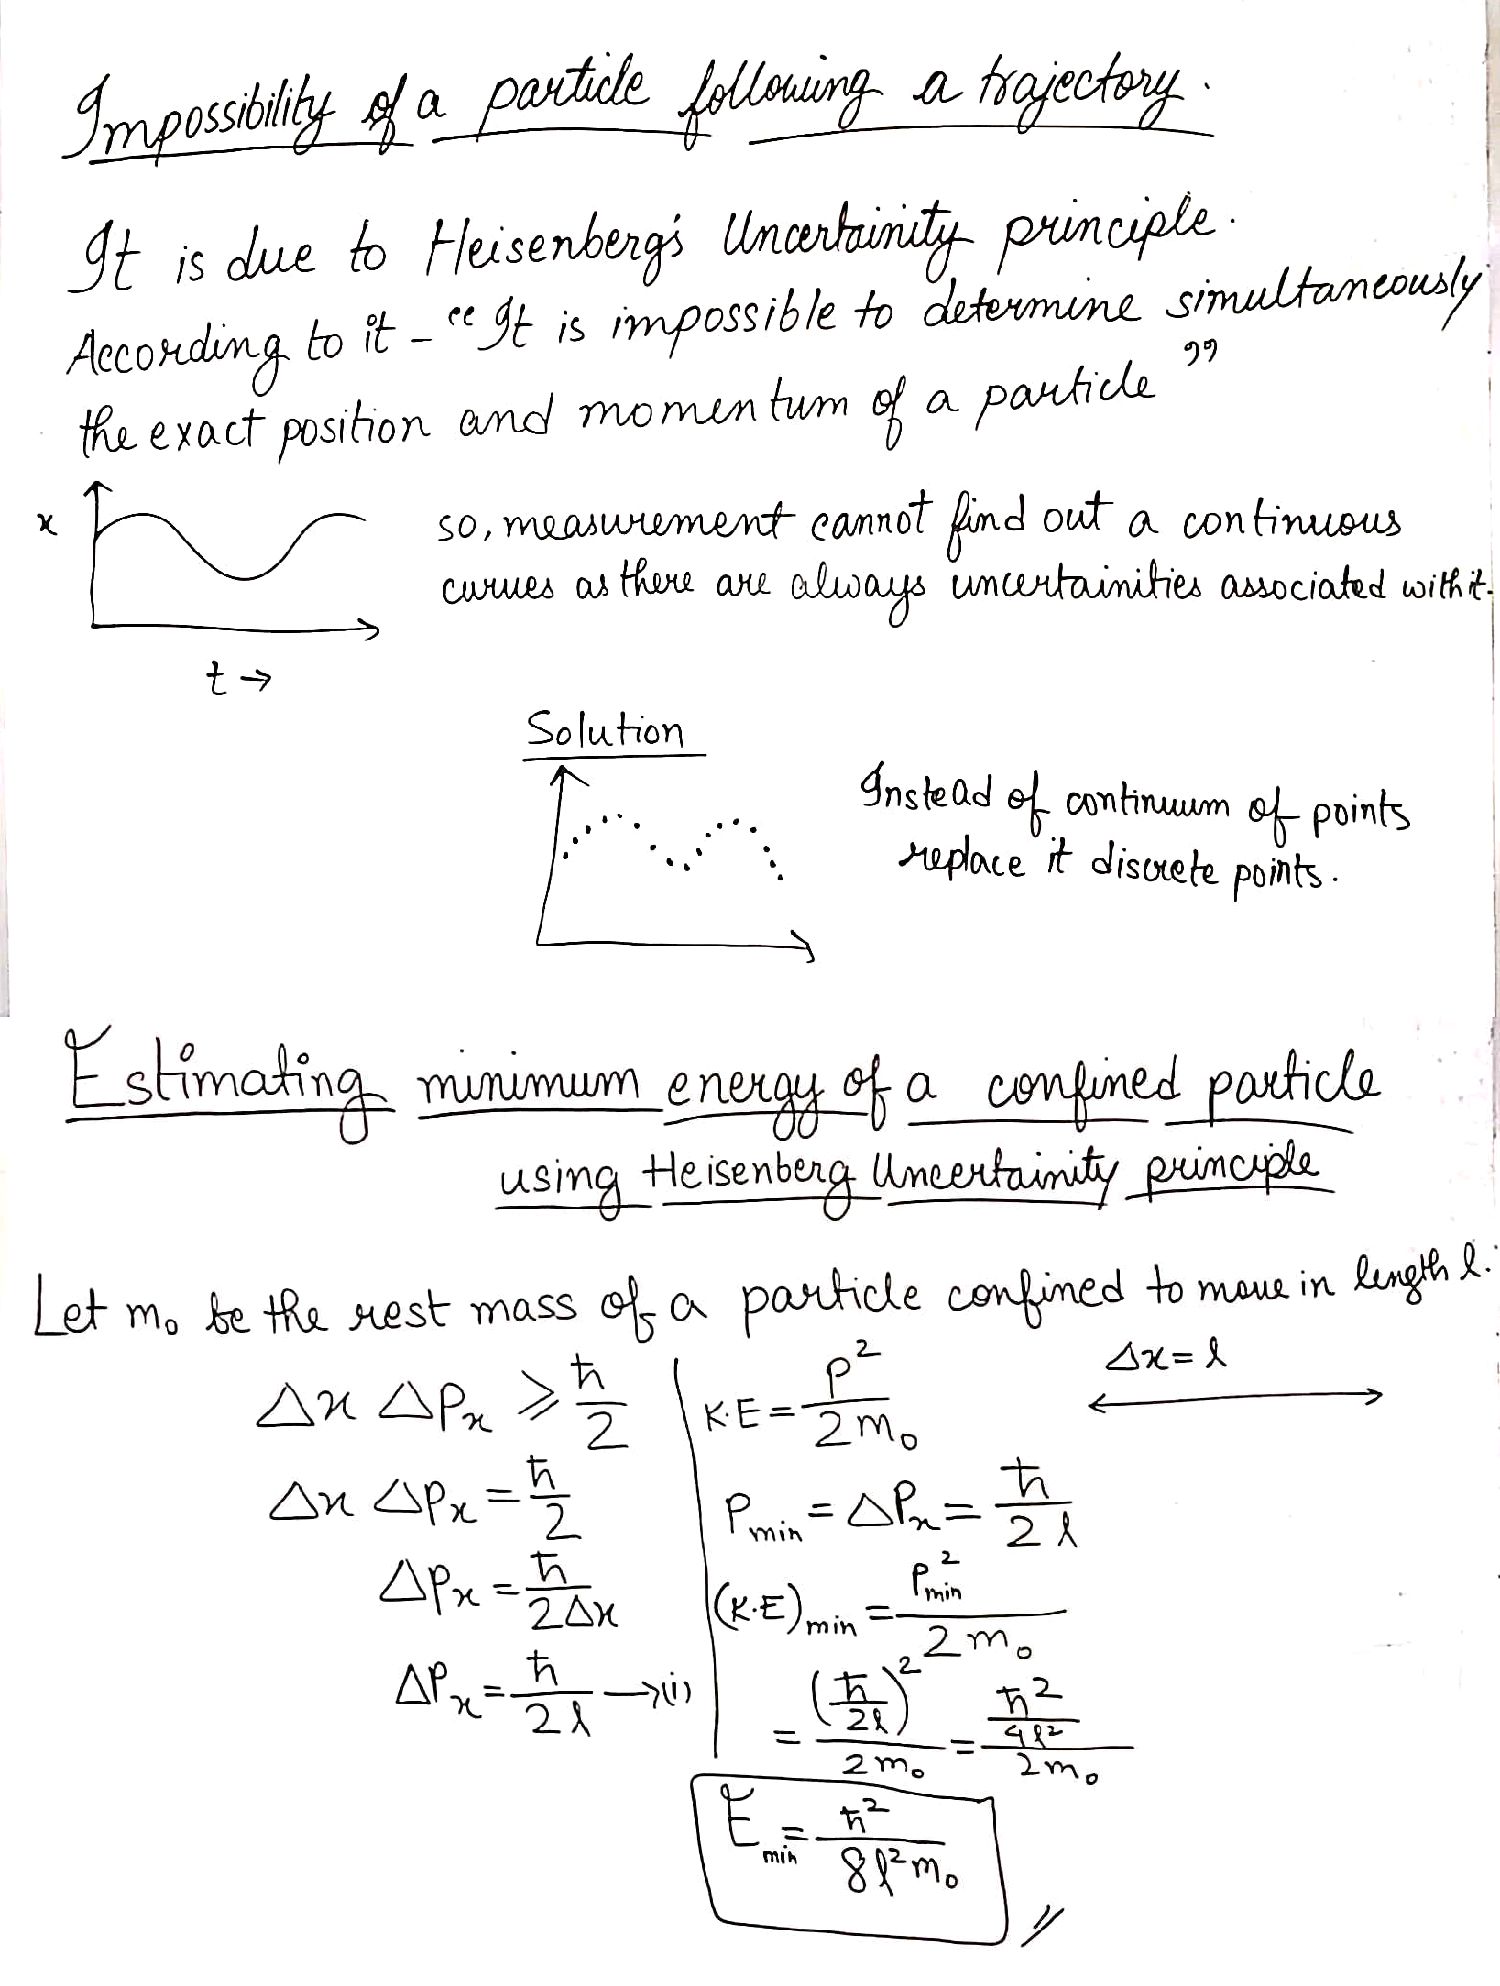 Impossibility of a particle following a trajectory.
It is due to Heisenberg's Uncertainity principle.
According to it - "It is impossible to determine simultaneously
the exact position and momentum of a particle"
x
t →
so, measurement cannot find out a continuous
curves as there are always uncertainities associated with it.
Solution
Instead of continuum of points
replace it discrete points.
Estimating minimum energy of a confined particle
using Heisenberg Uncertainity principle
Let m₀ be the rest mass of a particle confined to move in length l.
Δx = l
Δx ΔPx ≥ ħ/2
Δx ΔPx = ħ/2
ΔPx = ħ/2Δx
ΔPx = ħ/2l → (i)
K.E = P²/2m₀
Pmin = ΔPx = ħ/2l
(K.E)min = P²min/2m₀
= (ħ/2l)²/2m₀ = ħ²/4l²/2m₀
Emin = ħ²/8l²m₀